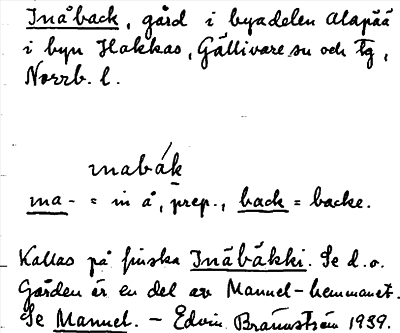 Inåback, gård i byadelen Alapää
i byn Hakkas, Gällivare sn och tg,
Norrb. l.
inabák
ina- = in å, prep., back = backe.
Kallas på finska Inäbäkki. Se d.o.
Gården är en del av Manuel-hemmanet.
Se Manuel. - Edvin Brännström 1939.